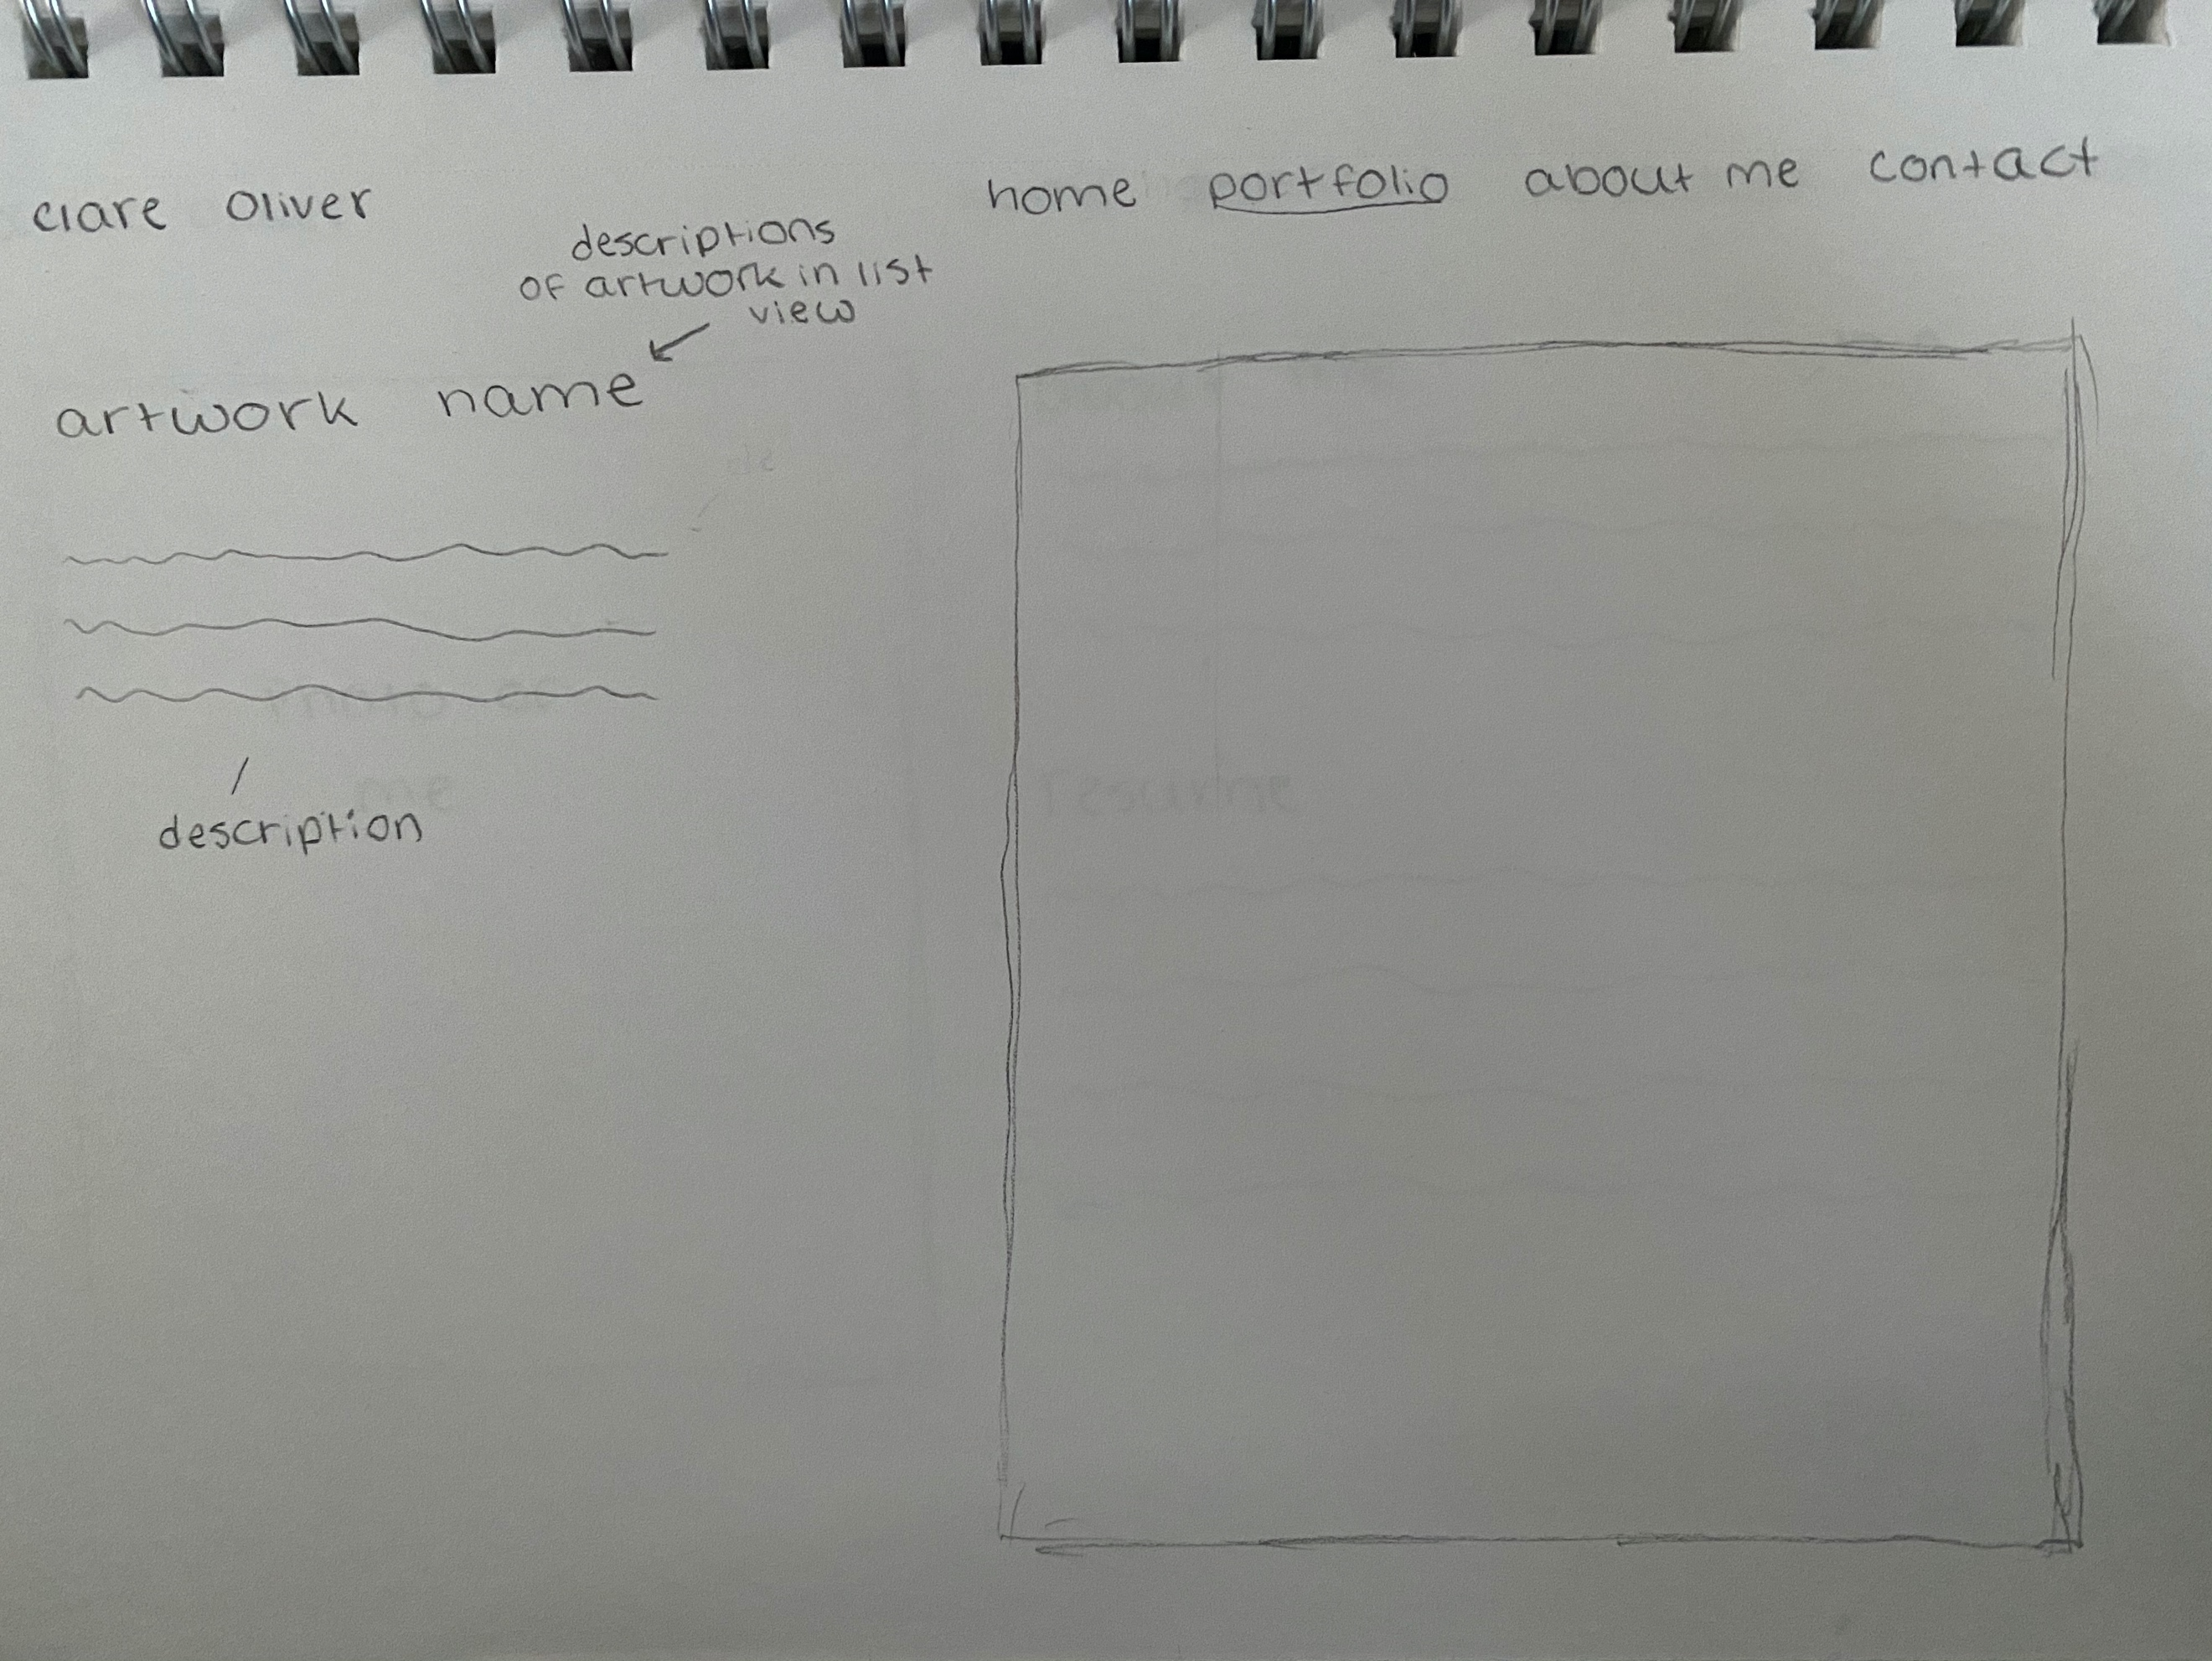 clare oliver
home portfolio about me contact
descriptions
of artwork in list
view
artwork name
description